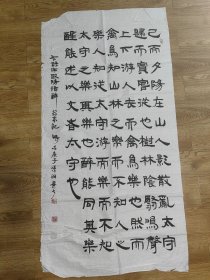 已而夕陽在山人影散亂太守
歸而賓客從也樹林陰翳鳴聲
上下游人去而禽鳥樂也然而
禽鳥知山林之樂而不知人之
樂人知從太守游而樂而不知
太守之樂其樂也醉能同其樂
醒能述以文者太守也